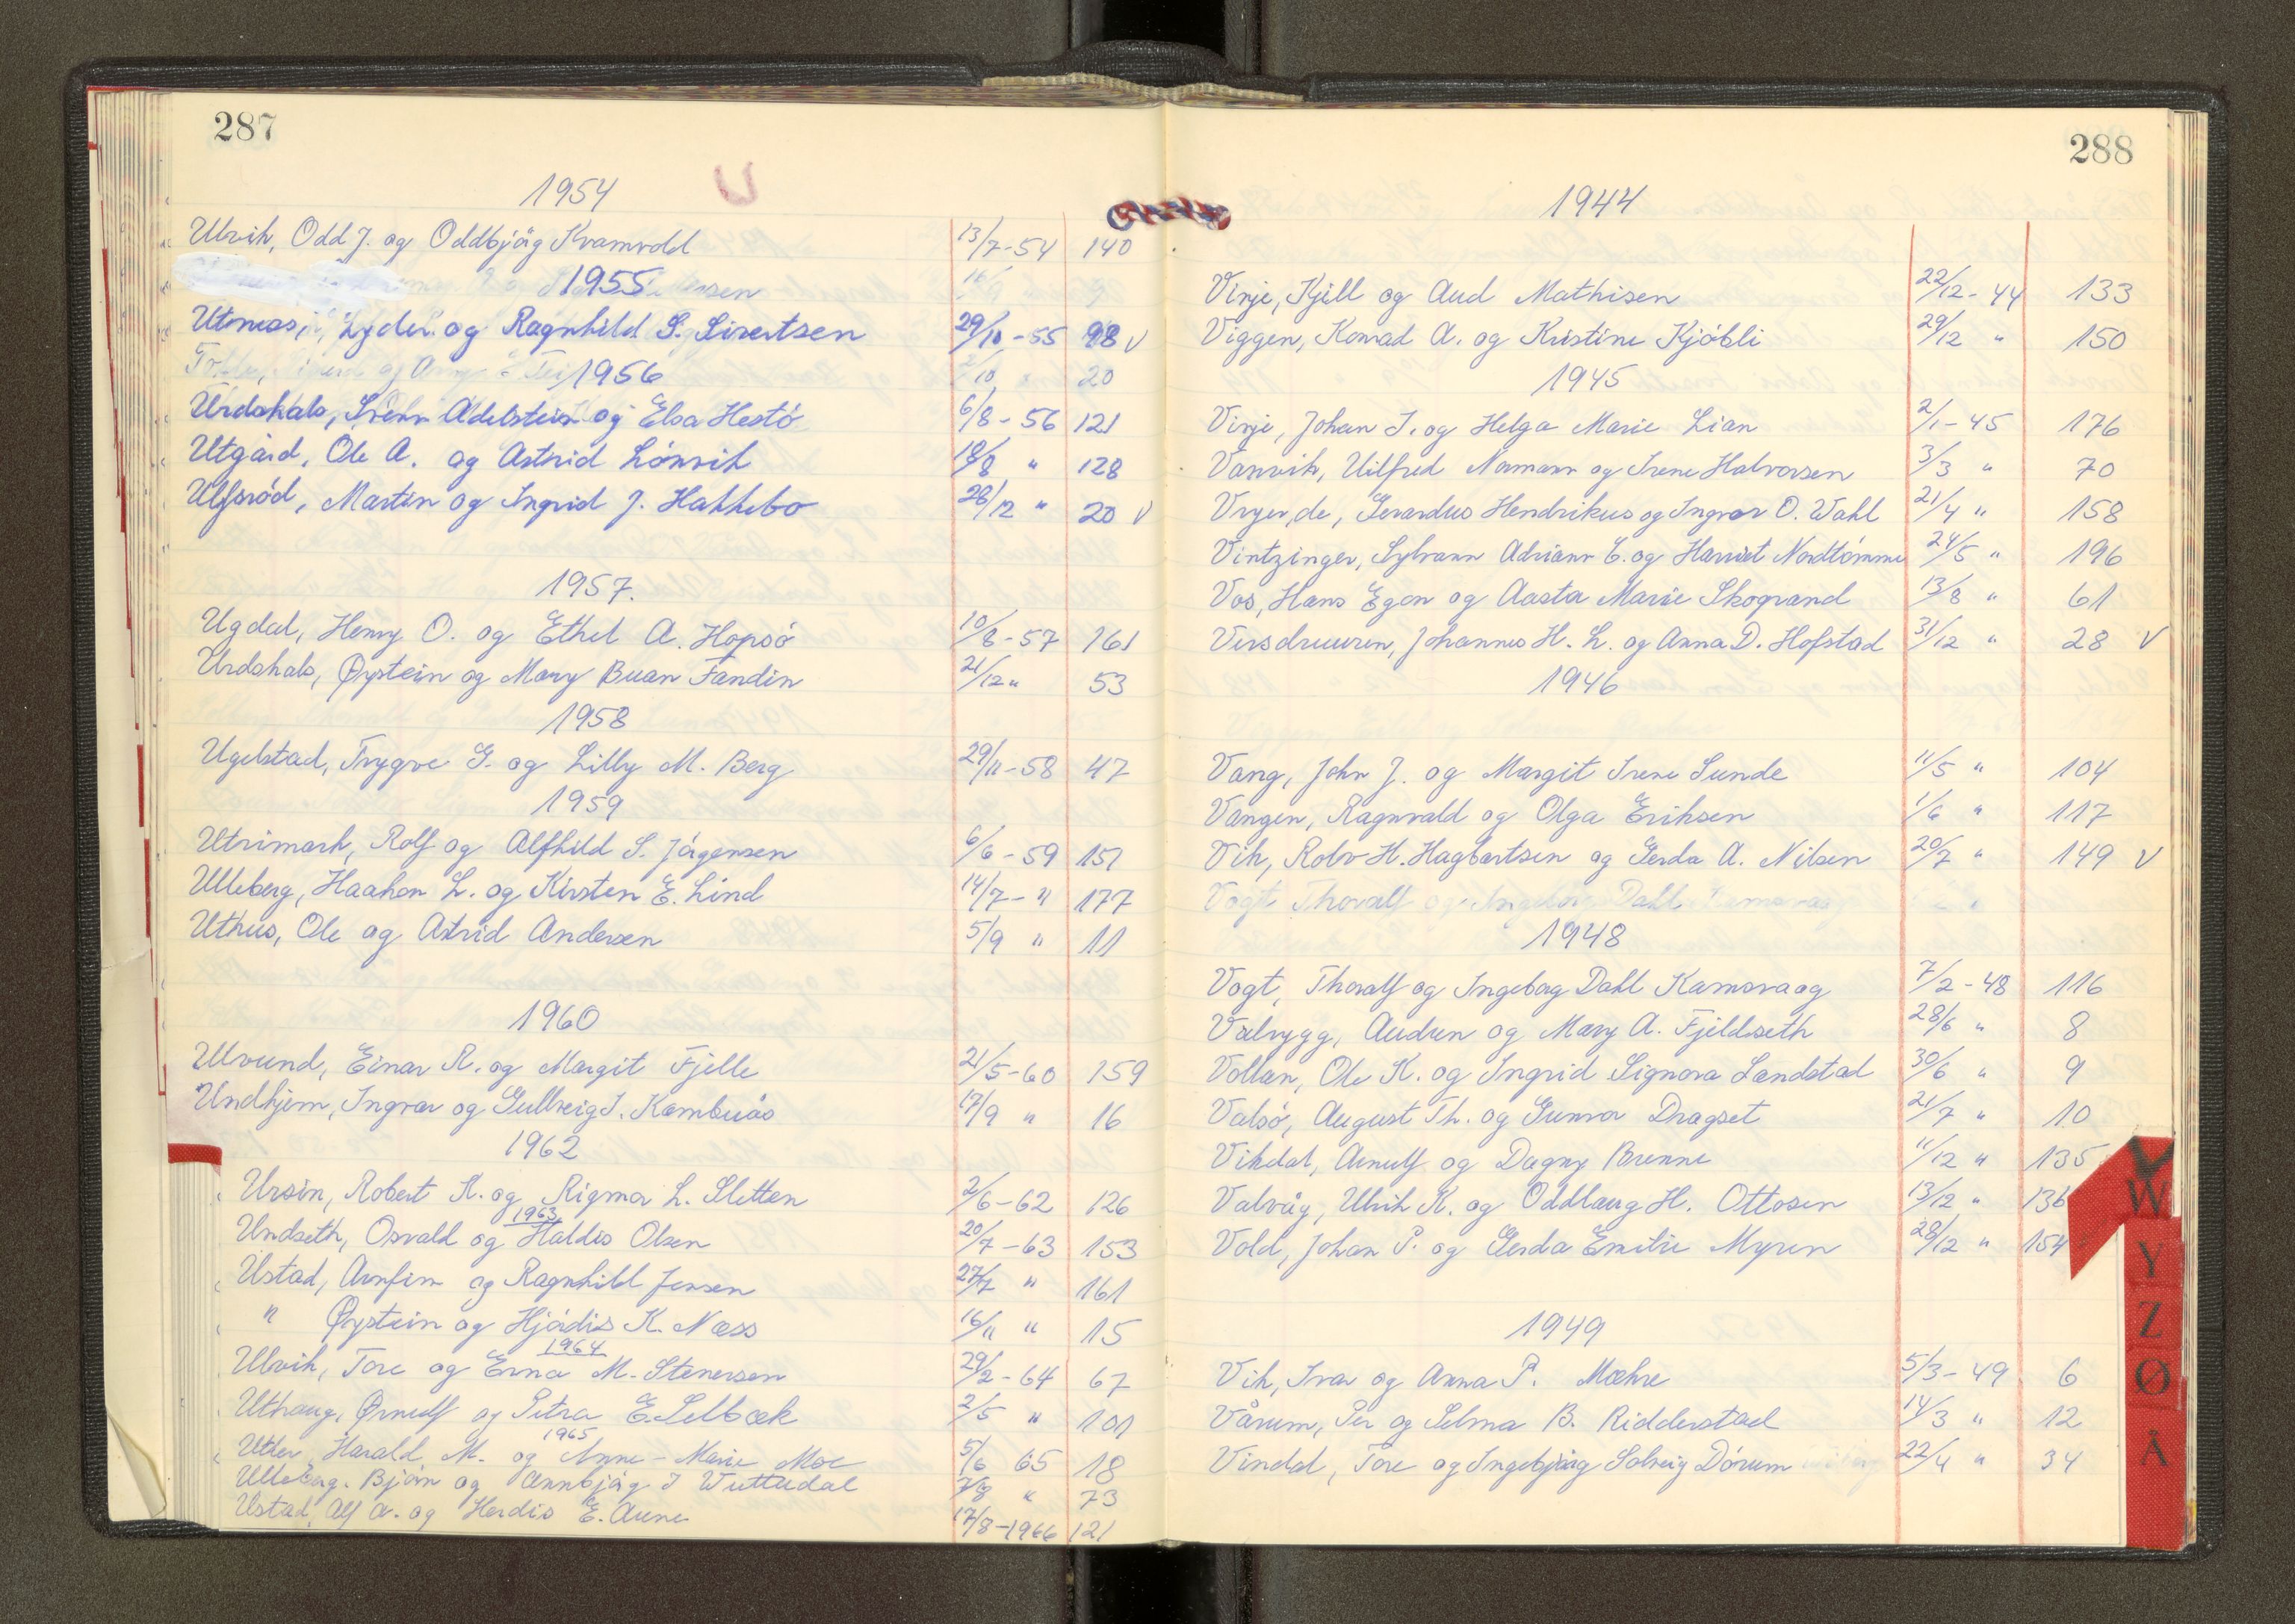 287
U
1954
Ulvik, Odd J. og Oddbjög Kvamvold 13/7-54 140
1955
Utmos, Lyder og Ragnhild S. Sivertsen 29/10-55 98 v
1956
20
Urdshals, Svenn Adelstein og Elsa Hestö 6/8-56 121
Utgård, Ole A. og Astrid Lönvik 18/8 " 128
Ulfsröd, Martin og Ingrid J. Hakkebo 28/12 " 20 v
1957.
Ugdal, Henry O. og Ethel A. Hopsö 10/8-57 161
Urdshals, Øystein og Mary Buan Fandin 21/12 " 53
1958
Ugelstad, Trygve G. og Lilly M. Berg 29/11-58 47
1959
Utvimark, Rolf og Alfhild S. Jörgensen 6/6-59 151
Ulleberg, Haakon L. og Kirsten E. Lind 14/7- " 177
Uthus, Ole og Astrid Andersen 5/9 " 11
1960
Ulvund, Einar R. og Margit Fjelle 21/5-60 159
Undhjem, Ingvar og Gullveig I. Kambuås 17/9 " 16
1962
Ursin, Robert K. og Rigmor L. Sletten 2/6-62 126
1963
Undseth, Osvald og Haldis Olsen 20/7-63 153
Ustad, Arnfinn og Ragnhild Jensen 27/7 " 161
" Øystein og Hjördis K. Næss 16/11 " 15
1964
Ulvik, Tore og Erna M. Stenersen 29/2-64 67
Uthaug, Ørnulf og Petra E. Selbæk 2/5 " 101
1965
Utler, Harald M. og Anne-Marie Moe 5/6 65 18
Ulleberg, Björn og Annbjög I Wuttudal 7/8 " 73
Ustad, Alf A. og Herdis E. Aune 17/8-1966 121
288
1944
Vinje, Kjell og Aud Mathisen 22/12-44 133
Viggen, Konrad A. og Kristine Kjöbli 29/12 " 150
1945
Vinje, Johan I. og Helga Marie Lian 2/1-45 176
Vanvik, Vilfred Normann og Irene Halvorsen 3/3 " 70
Vryer, de, Gerardus Hendrikus og Ingvor O. Wahl 21/4 " 158
Vintzinger, Sylvann Adriann E. og Harriet Nordtömme 24/5 " 196
Vos, Hans Egon og Aasta Marie Skogrand 13/8 " 61
Versdruuren, Johannes H. L. og Anna D. Hofstad 31/12 " 28 v
1946
Vang, John J. og Margit Irene Sunde 11/5 " 104
Vangen, Ragnvald og Olga Eriksen 1/6 " 117
Vik, Rolv H. Hagbartsen og Gerda A. Nilsen 20/7 " 149 v
Vogt Thoralf og Ingeborg Dahl Kamsvaag
1948
Vogt, Thoralf og Ingeborg Dahl Kamsvaag 7/2-48 116
Valrygg, Audun og Mary A. Fjeldseth 28/6 " 8
Vollan, Ole K. og Ingrid Signora Landstad 30/6 " 9
Valsö, August Th. og Gunvor Dragset 21/7 " 10
Vikdal, Arnulf og Dagny Brenne 11/12 " 135
Valvåg, Ulrik K. og Oddlaug H. Ottosen 13/12 " 136
Vold, Johan P. og Gerda Emilie Myren 28/12 " 154
1949
Vik, Ivar og Anna P. Mæhre 5/3-49 6
Vårum, Per og Selma B. Ridderstad 14/3 " 12
Vindal, Tore og Ingebjörg Solveig Dörum 22/4 " 34
V
W
Y
Z
Ø
Å